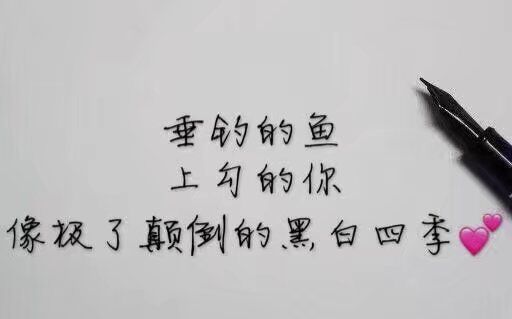 垂钓的鱼
上勾的你
像极了颠倒的黑白四季💕